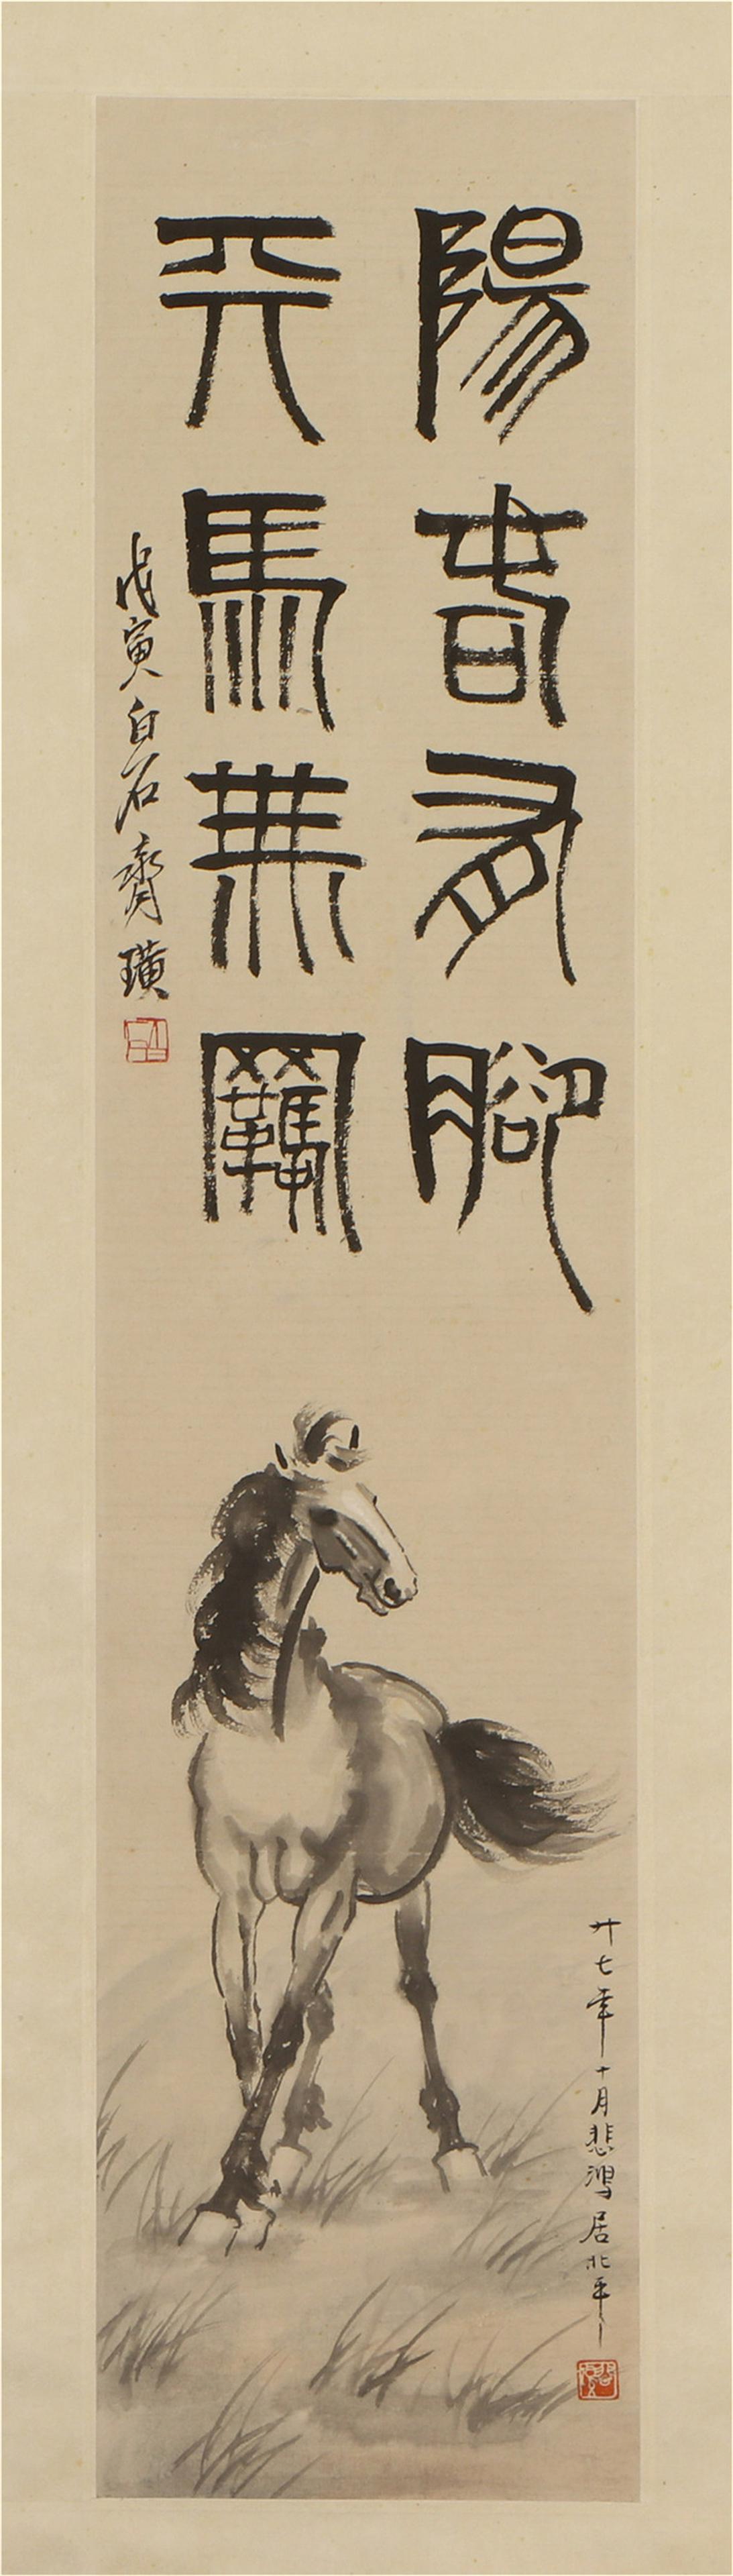 陽春有腳
天馬無羈
戊寅白石齊璜
廿七年十月悲鴻居北平